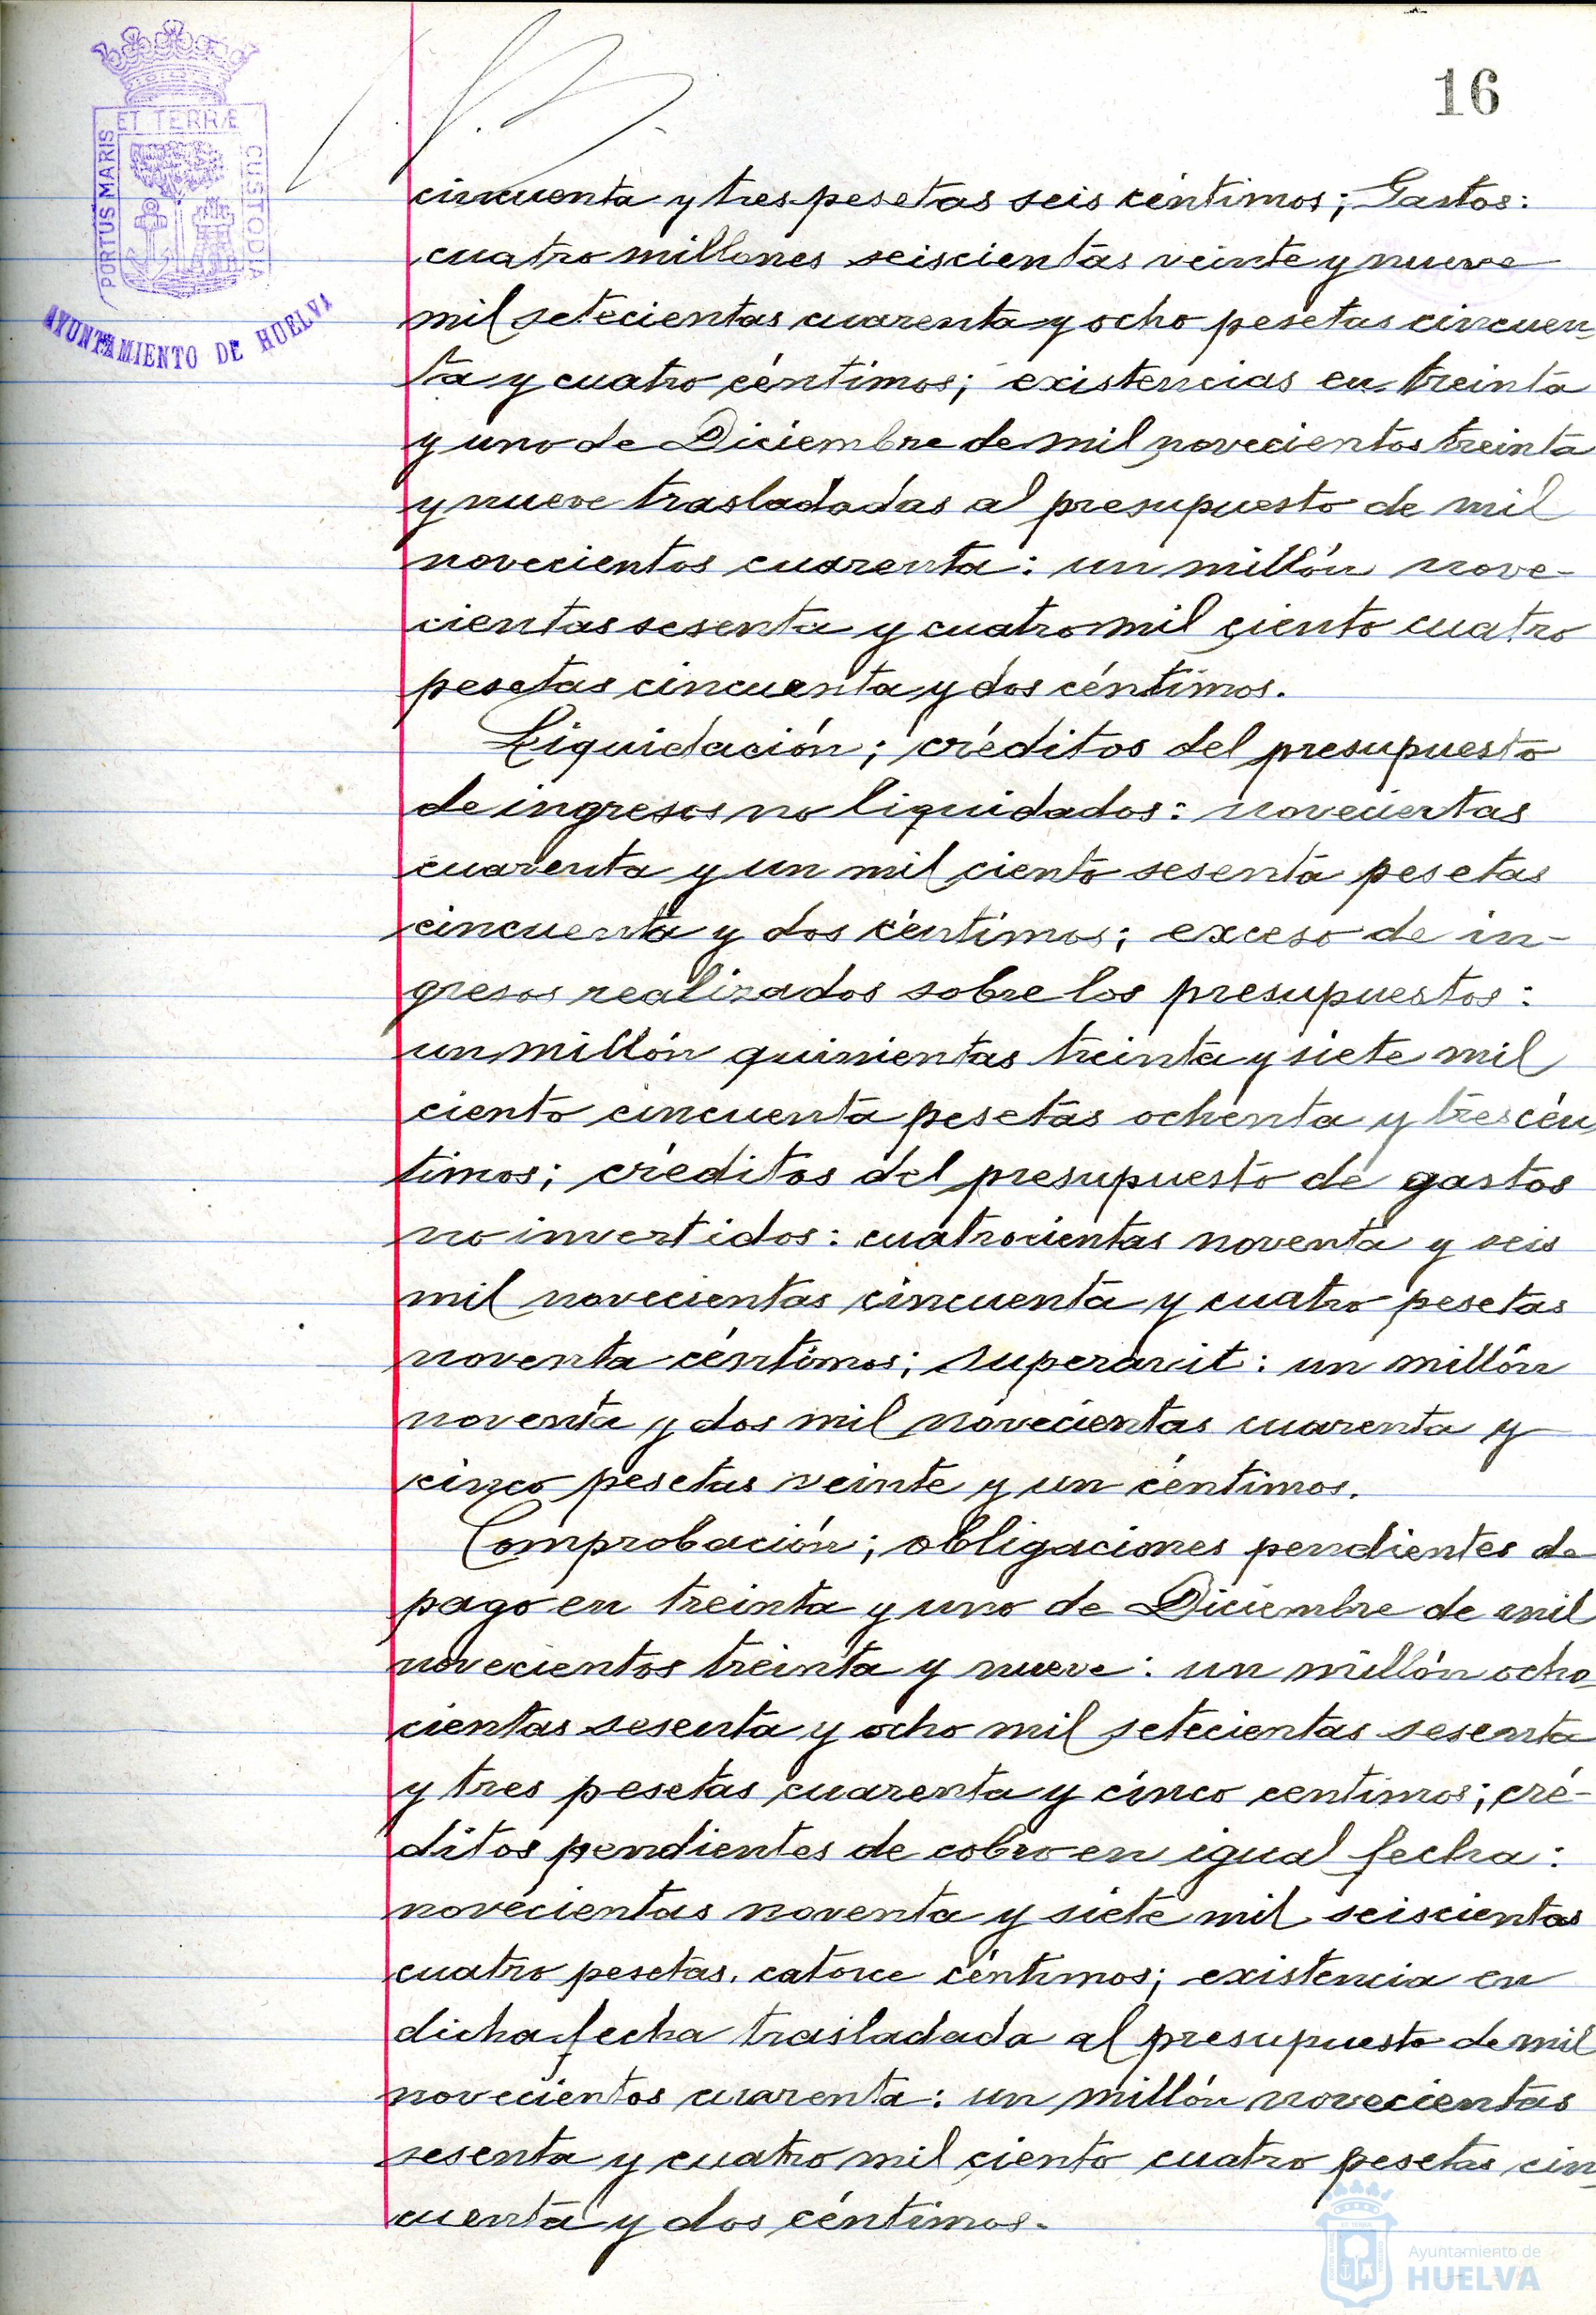 16
ET TERRÆ
PORTUS MARIS
CUSTODIA
AYUNTAMIENTO DE HUELVA
cincuenta y tres pesetas seis céntimos; Gastos:
cuatro millones seiscientas veinte y nueve
mil setecientas cuarenta y ocho pesetas cincuen-
ta y cuatro céntimos; existencias en treinta
y uno de Diciembre de mil novecientos treinta
y nueve trasladadas al presupuesto de mil
novecientos cuarenta: un millón nove-
cientas sesenta y cuatro mil ciento cuatro
pesetas cincuenta y dos céntimos.
Liquidación; créditos del presupuesto
de ingresos no liquidados: novecientas
cuarenta y un mil ciento sesenta pesetas
cincuenta y dos céntimos; exceso de in-
gresos realizados sobre los presupuestos:
un millón quinientas treinta y siete mil
ciento cincuenta pesetas ochenta y tres cén-
timos; créditos del presupuesto de gastos
no invertidos: cuatrocientas noventa y seis
mil novecientas cincuenta y cuatro pesetas
noventa céntimos; superavit: un millón
noventa y dos mil novecientas cuarenta y
cinco pesetas veinte y un céntimos.
Comprobación; obligaciones pendientes de
pago en treinta y uno de Diciembre de mil
novecientos treinta y nueve: un millón ocho-
cientas sesenta y ocho mil setecientas sesenta
y tres pesetas cuarenta y cinco centimos; cré-
ditos pendientes de cobro en igual fecha:
novecientas noventa y siete mil seiscientas
cuatro pesetas, catorce céntimos; existencia en
dicha fecha trasladada al presupuesto de mil
novecientos cuarenta: un millón novecientas
sesenta y cuatro mil ciento cuatro pesetas cin-
cuenta y dos céntimos.
Ayuntamiento de
HUELVA